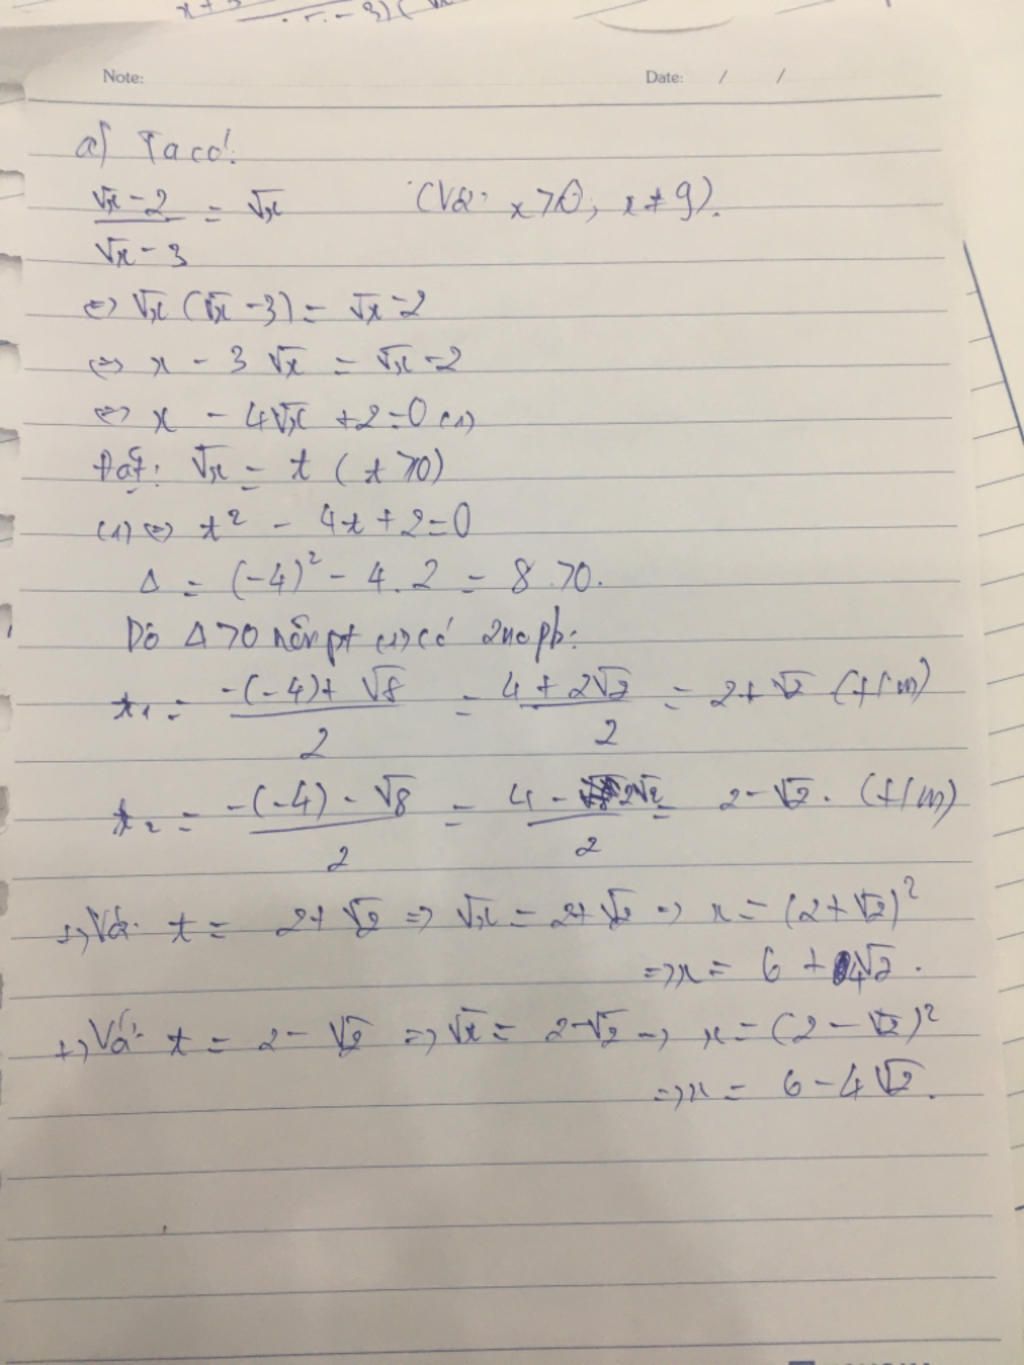 Note: Date: / /
a) Ta có:
\frac{√x - 2}{√x - 3} = √x (Với x > 0; x ≠ 9).
⇔ √x (√x - 3) = √x - 2
⇔ x - 3√x = √x - 2
⇔ x - 4√x + 2 = 0 (1)
Đặt: √x = t (t > 0)
(1) ⇔ t² - 4t + 2 = 0
Δ = (-4)² - 4.2 = 8 > 0.
Do Δ > 0 nên pt (1) có 2 no pb:
t₁ = \frac{-(-4) + √8}{2} = \frac{4 + 2√2}{2} = 2 + √2 (t/m)
t₂ = \frac{-(-4) - √8}{2} = \frac{4 - 2√2}{2} = 2 - √2. (t/m)
+) Với t = 2 + √2 ⇒ √x = 2 + √2 ⇒ x = (2 + √2)²
⇒ x = 6 + 4√2.
+) Với t = 2 - √2 ⇒ √x = 2 - √2 ⇒ x = (2 - √2)²
⇒ x = 6 - 4√2.